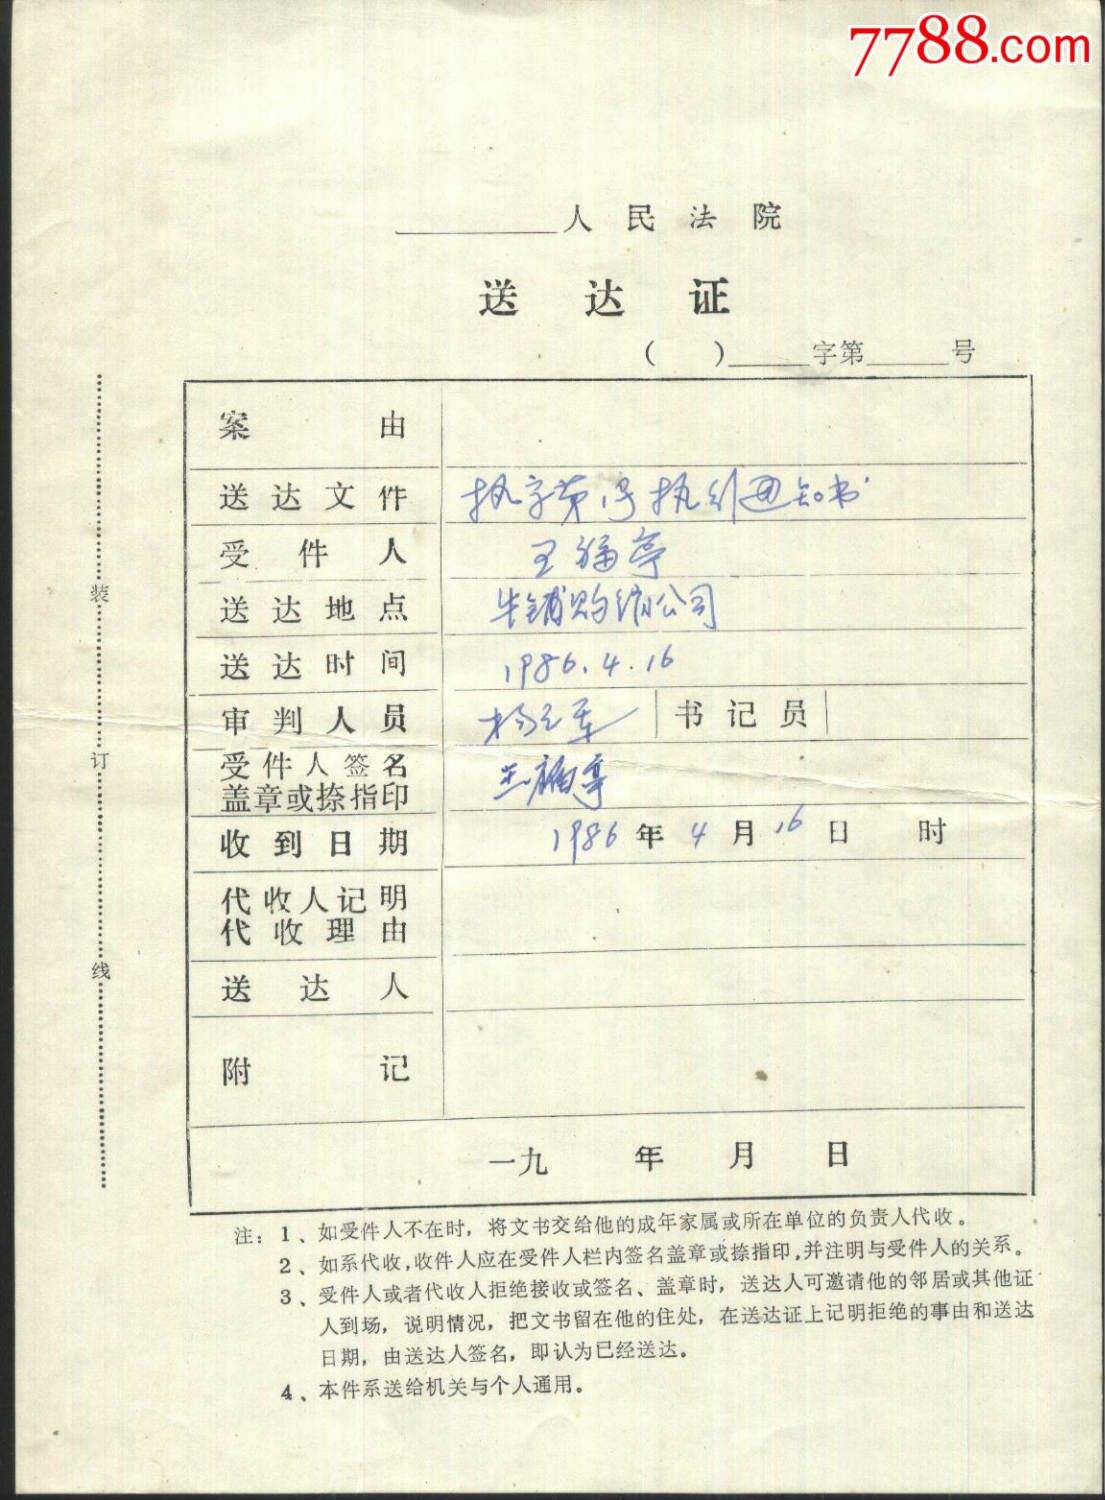 7788.com
人民法院
送达证
( )字第号
案由
送达文件 执字第1号执行通知书
受件人 王福亭
送达地点 牛铺购销公司
送达时间 1986.4.16
审判人员 杨 军 书记员
受件人签名
盖章或捺指印 王福亭
收到日期 1986年4月16日 时
代收人记明
代收理由
送达人
附记
一九 年 月 日
注：1、如受件人不在时，将文书交给他的成年家属或所在单位的负责人代收。
2、如系代收，收件人应在受件人栏内签名盖章或捺指印，并注明与受件人的关系。
3、受件人或者代收人拒绝接收或签名、盖章时，送达人可邀请他的邻居或其他证
人到场，说明情况，把文书留在他的住处，在送达证上记明拒绝的事由和送达
日期，由送达人签名，即认为已经送达。
4、本件系送给机关与个人通用。
装订线